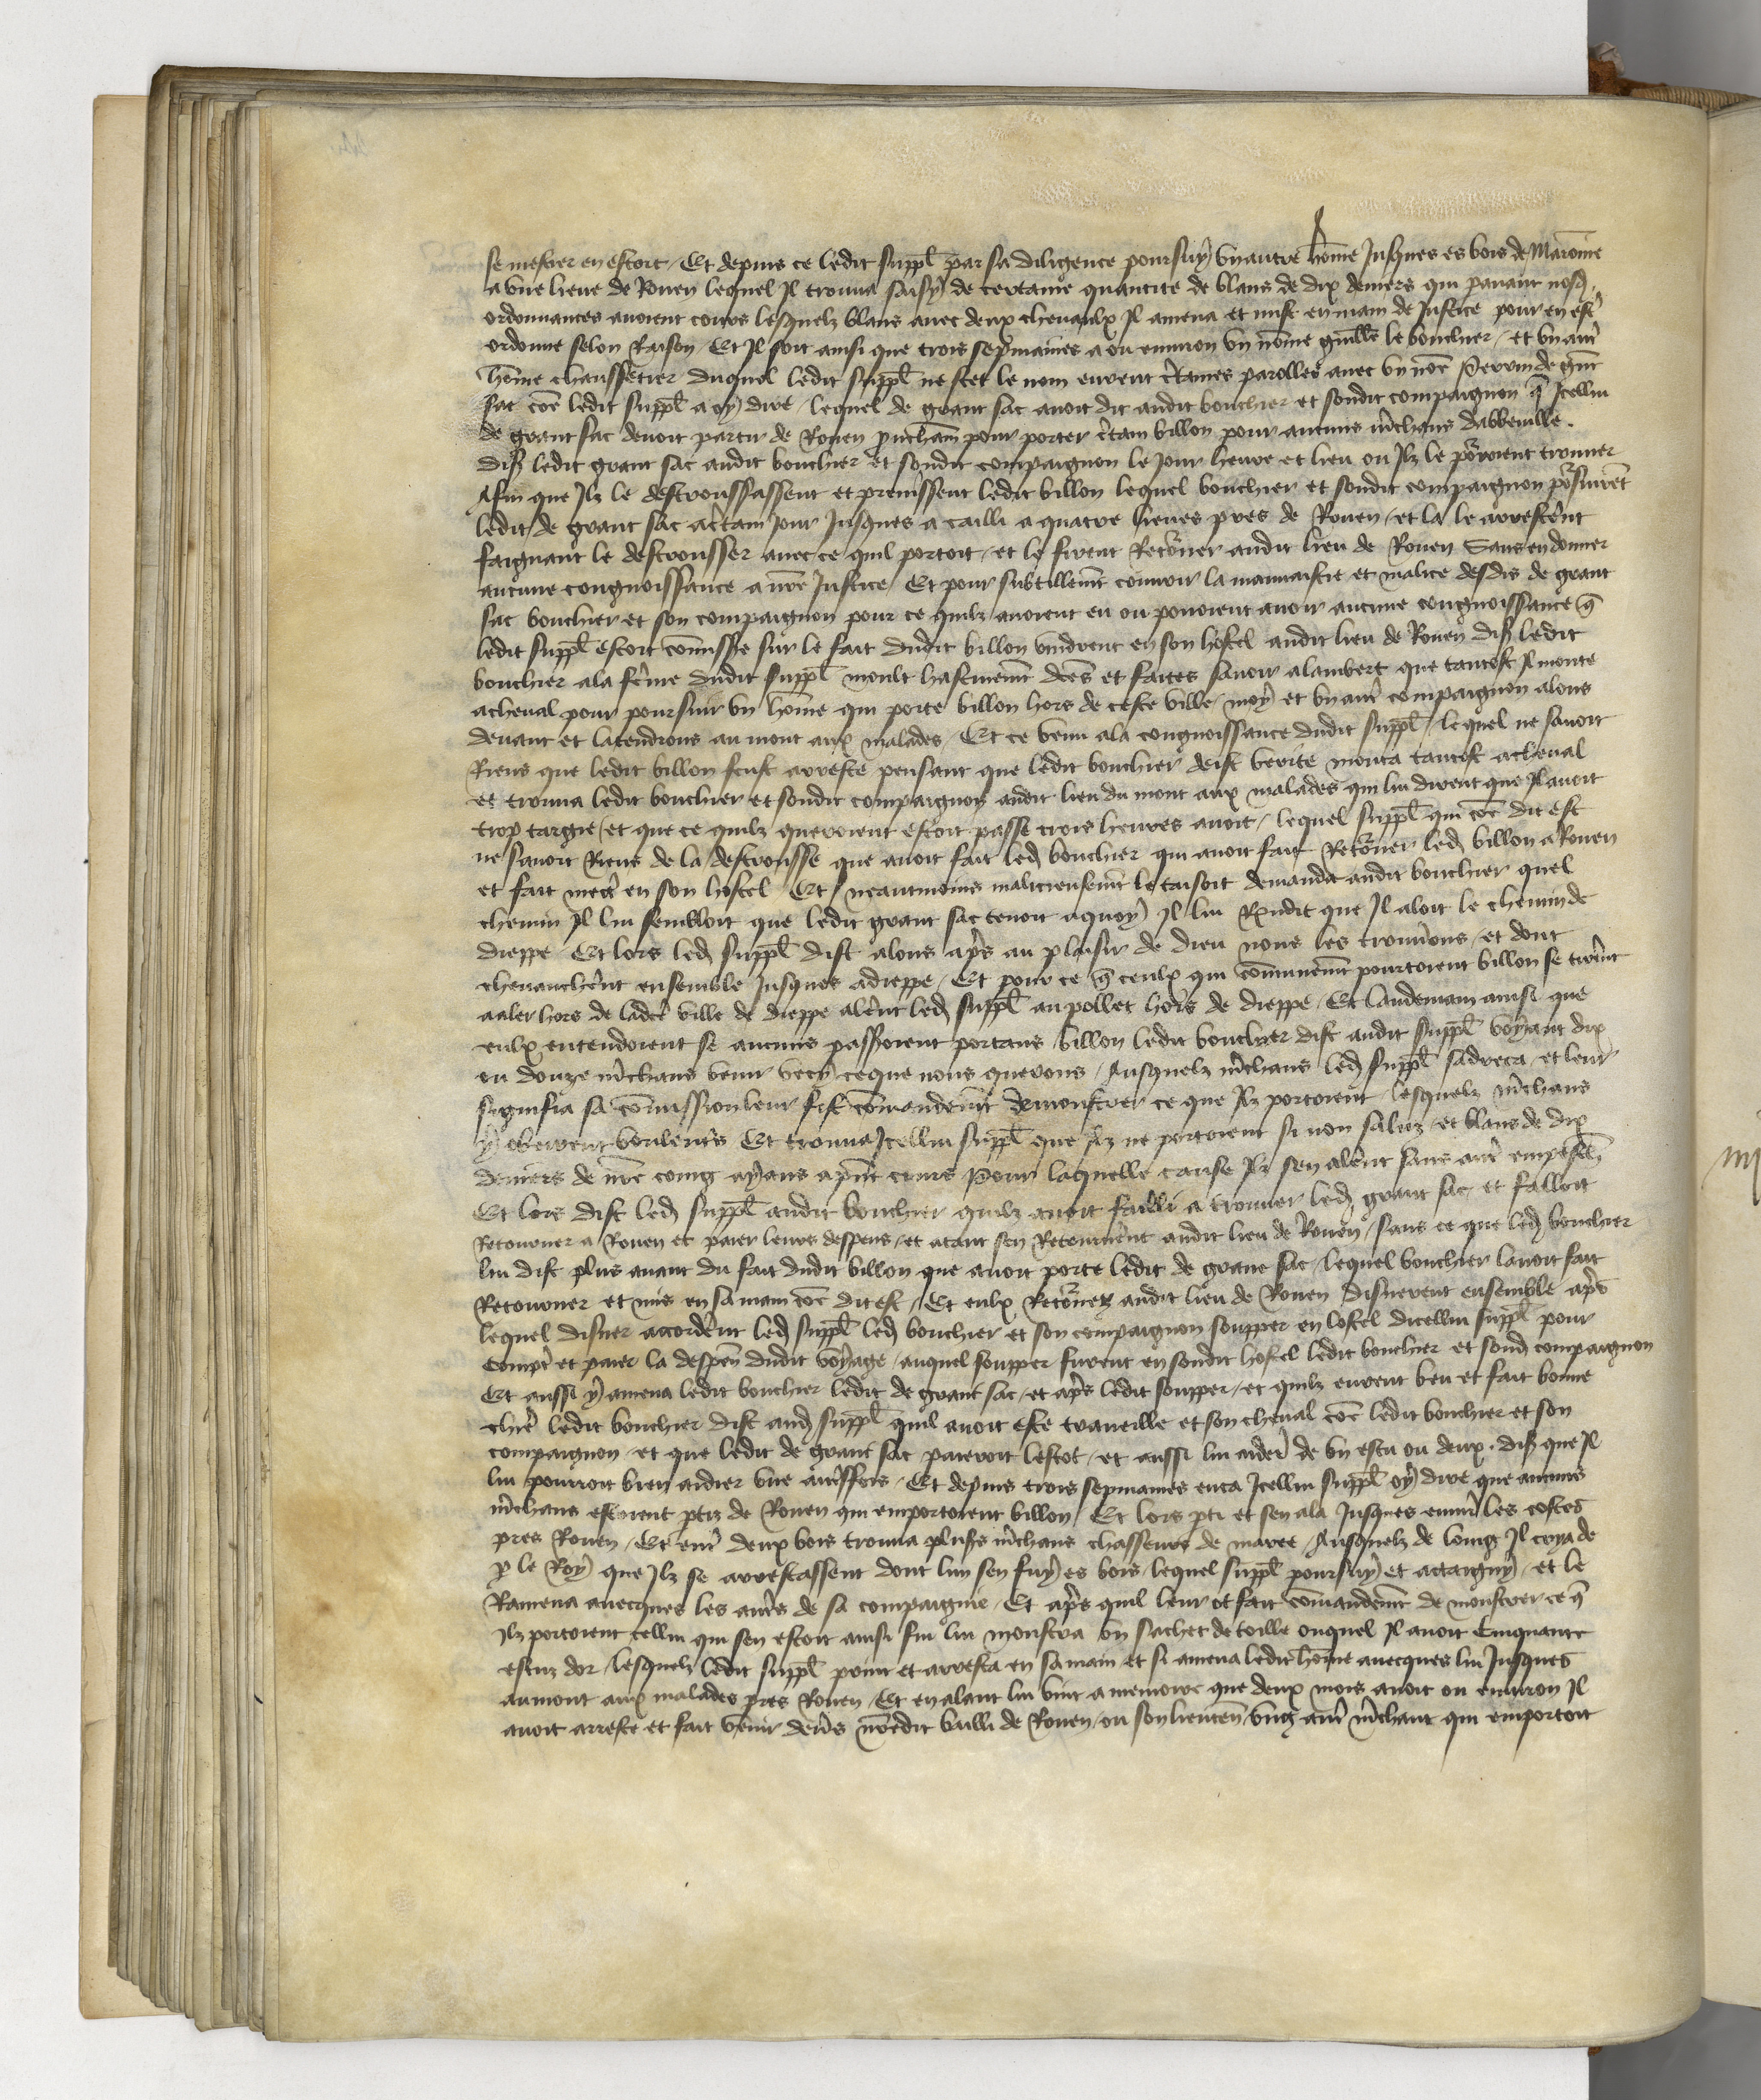 se mestier en estoit / Et depuis ce ledit suppl̄ par sa diligence poursuy un autre hōme Jusques es bois de Marōme
a une lieue de Rouen lequel Il trouva saisy de certaine quantite de blans de dix deniers qui pavant nosd
ordonnances avoient cours lesquelz blans avec deux chevaulx Il amena et mist en main de Justice pour en est'
ordonne selon Raison Et Il soit ainsi que trois sepmaines a ou environ un nōme guille le bouchier / et un aut'
hōme chaussetier duquel ledit suppl̄ ne scet le nom eurent c'taines parolles avec un nōe Perrin de gant
sac cōe ledit suppl̄ a oy dire / lequel de grant sac avoit dit audit bouchier et sondit compaignon q̄ Icellui
de grant sac devoit partir de Rouen p'uchain pour porter c'tain billon pour aucuns m'chans dabbeville
dist ledit grant sac audit bouchier et sondit compaignon le Jour heure et lieu ou Ilz le porroient trouver
Afin que Ilz le destroussassent et prenissent ledit billon lequel bouchier et sondit compaignon po'suirēt
ledit de grant sac a c'tain Jour Jusques a cailli a quatre lieues pres de Rouen / et la le arrest'ent
faignant le destrousser avec ce quil portoit / et le firent Reto'ner audit lieu de Rouen Sans en donner
aucune congnoissance a nr̄e Justice Et pour subtillem̄t couvrir la mauvaistie et malice desdis de grant
sac bouchier et son compaignon pour ce quilz avoient eu ou povoient avoir aucune congnoissance q̄
ledit suppl̄ estoit cōmissre sur le fait dudit billon vindrent en son hostel audit lieu de Rouen dist ledit
bouchier a la fe'me dudit suppl̄ moult hastivem̄t dc̄es et faites savoir a lambert que tantost Il monte
a cheval pour poursuir un hōme qui porte billon hors de ceste ville / moy et un aut' compaignon alons
devant et latendrons au mont aux malades / Et ce venu a la congnoissance dudit suppl̄ / lequel ne savoit
Riens que ledit billon feust arreste pensant que ledit bouchier deist verite monta tantost a cheval
et trouva ledit bouchier et sondit compaignon audit lieu du mont aux malades qui lui dirent que Il avoit
trop targie / et que ce quilz queroient estoit passe trois heures avoit / lequel suppl̄ qui cōe dit est
ne savoit Riens de la destrousse que avoit fait led bouchier qui avoit fait Reto'ner led billon a Rouen
et fait mect' en son hostel Et neantmoins malicieusem̄t le taisoit demanda audit bouchier quel
chemin Il lui sembloit que ledit grant sac tenoit a quoy Il lui Rn̄dit que Il aloit le chemin de
dieppe Et lors led suppl̄ dist alons ap's au plaisir de dieu nous les trouv'ons / et dont
chevauch'ent ensemble Jusques a dieppe / Et pour ce q̄ ceulx qui cōmunem̄t pourtoient billon se tir'ent
a aler hors de lad' ville de dieppe al'ent led suppl̄ au pollet hors de dieppe / Et landemain ainsi que
eulx entendoient se aucuns passoient portans billon ledit bouchier dist audit suppl̄ voyant dix
ou douze m'chans venir vecy ce que nous querons / Ausquelz m'chans led suppl̄ sadreca / et leur
signifia sa cōmission leur fist cōmandem̄t de monstrer ce que Ilz portoient lesquelz m'chans
y obeirent voulent's Et trouva Icellui suppl̄ que Ilz ne portoient si non saluz et blans de dix
deniers de nr̄e coing ayans ap'nt cours Pour laquelle cause Ilz sen al'ent sans aut' empeschē
Et lors dist led suppl̄ audit bouchier quilz avoit failli a trouver led grant sac / et falloit
Retourner a Rouen et paier leurs despens / et atant sen Retourn'ent audit lieu de Rouen / sans ce que led bouchier
lui dist plus avant du fait dudit billon que avoit porte ledit de grant sac / lequel bouchier lavoit fait
Retourner et mis en sa main cōe dit est / Et eulx Reto'nez audit lieu de Rouen disnerent ensemble ap's
lequel disner accord'ent led suppl̄ led bouchier et son compaignon soupper en lostel dicellui suppl̄ pour
compt' et paier la despen̄ dudit voyage / auquel soupper furent en sondit hostel ledit bouchier et sond compaignon
Et aussi y amena ledit bouchier ledit de grant sac / et ap's ledit soupper / et quilz eurent beu et fait bonne
chie' ledit bouchier dist aud suppl̄ quil avoit este traveille et son cheval cōe ledit bouchier et son
compaignon / et que ledit de grant sac paieroit lescot / et aussi lui aider' de un escu ou deux . dist que Il
lui pourroit bien aidier une aut'sfois / Et depuis trois sepmaines enca Icellui suppl̄ oy dire que aucuns
m'chans estoient ptiz de Rouen qui emportoient billon / Et lors pti et sen ala Jusques envir' les costes
pres Rouen / Et ent' deux bois trouva plus's m'chans chasseurs de maree / Ausquelz de loing Il crya de
p le Roy que Ilz se arrestassent dont lun sen fuy es bois / lequel suppl̄ poursuy et actaigny / et le
Ramena avecques les aut's de sa compaignie / Et ap's quil leur ot fait cōmandem̄t de monstrer ce q̄
Ilz portoient cellui qui sen estoit ainsi fui lui monstra un sachet de toille ouquel Il avoit Cinquante
escuz dor / lesquelz ledit suppl̄ print et arresta en sa main et si amena ledit hōme avecques lui Jusques
au mont aux malades pres Rouen / Et en alant lui vint a memoire que deux mois avoit ou environ Il
avoit arreste et fait venir dev's nr̄edit bailli de Rouen / ou son lieuten̄ / ung aut' m'chant qui emportoit